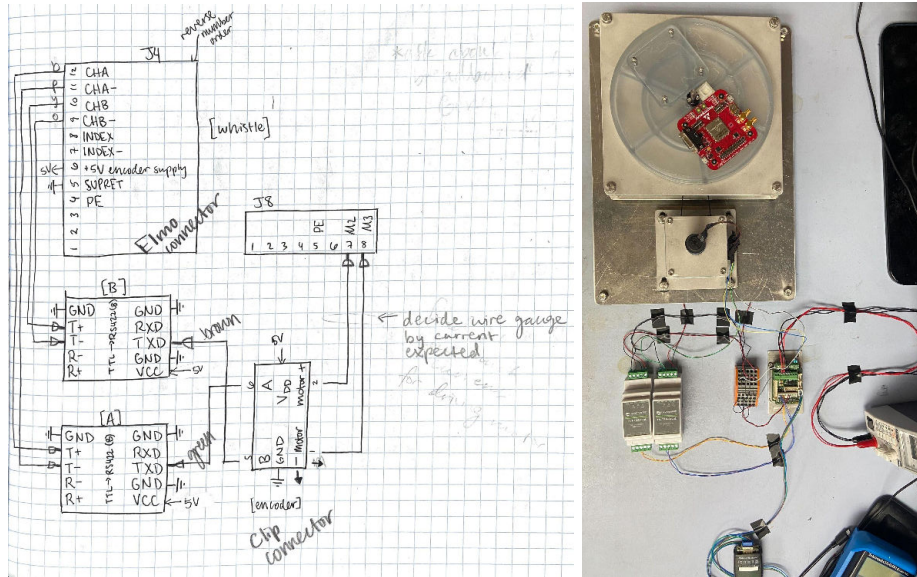 reverse
number
order
J4
b 12 CHA
p 11 CHA-
y 10 CHB
o 9 CHB-
8 INDEX
7 INDEX-
5V 6 +5V encoder supply
5 SUPRET
4 PE
3
2
1
Elmo
connector
[whistle]
J8
PE M2 M3
1 2 3 4 5 6 7 8
[B]
GND GND
T+ RXD
T- TXD
R- GND
R+ VCC 5V
TTL→RS422(B)
brown
← decide wire gauge
by current
expected
5V
6 A VDD motor + 2
5 B GND motor - 1
[encoder]
Clip
connector
[A]
GND GND
T+ RXD
T- TXD
R- GND
R+ VCC 5V
TTL→RS422
green